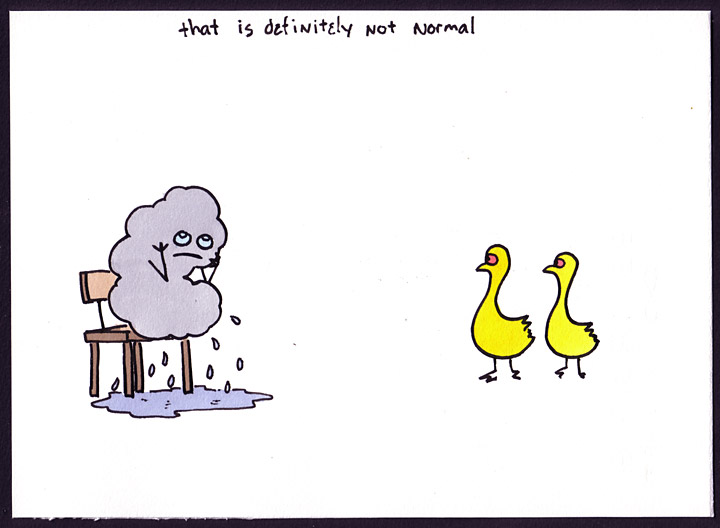 that is definitely not normal